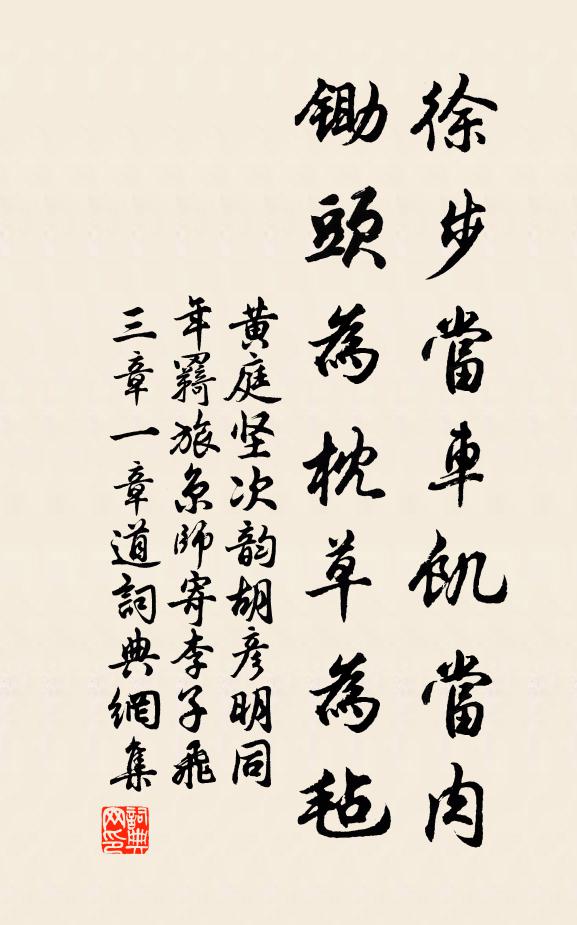 徐步當車飢當肉
鋤頭為枕草為毡
黄庭坚次韵胡彦明同
年羁旅京師寄李子飛
三章一章道詞典網集
詞典
网印